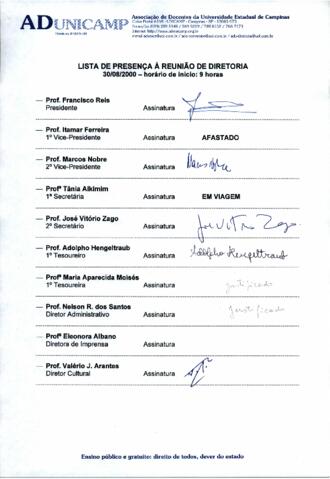 ADUNICAMP
Associação de Docentes da Universidade Estadual de Campinas
LISTA DE PRESENÇA À REUNIÃO DE DIRETORIA
30/08/2000 – horário de início: 9 horas
— Prof. Francisco Reis
Presidente Assinatura
— Prof. Itamar Ferreira
1º Vice-Presidente Assinatura AFASTADO
— Prof. Marcos Nobre
2º Vice-Presidente Assinatura
— Profª Tânia Alkimim
1ª Secretária Assinatura EM VIAGEM
— Prof. José Vitório Zago
2º Secretário Assinatura José Vitório Zago
— Prof. Adolpho Hengeltraub
1º Tesoureiro Assinatura Adolpho Hengeltraub
— Profª Maria Aparecida Moisés
1ª Tesoureira Assinatura justificado
— Prof. Nelson R. dos Santos
Diretor Administrativo Assinatura justificado
— Profª Eleonora Albano
Diretora de Imprensa Assinatura
— Prof. Valério J. Arantes
Diretor Cultural Assinatura
Ensino público e gratuito: direito de todos, dever do estado